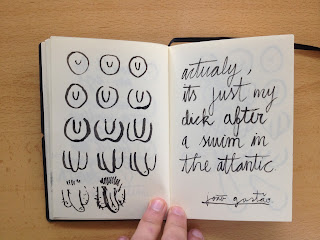 actualy,
its just my
dick after
a swim in
the atlantic.